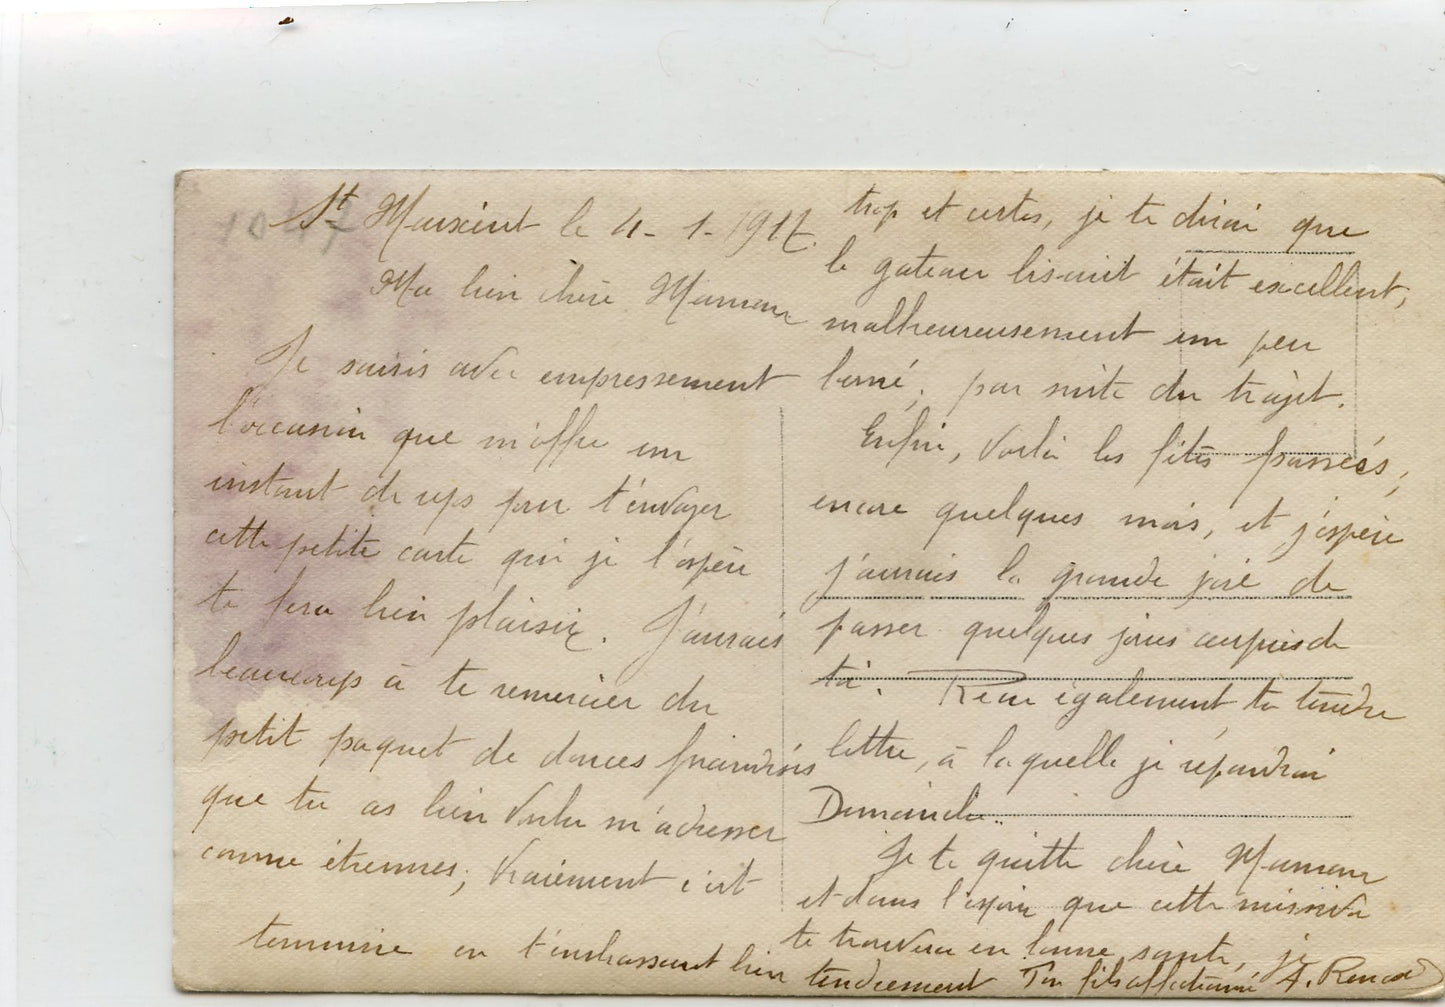 1047
St Maixent le 4-1-1917.
Ma bien chère Maman
Je saisis avec empressement
l'occasion que m'offre un
instant de reps pour t'envoyer
cette petite carte qui je l'espère
te fera bien plaisir. J'aurais
beaucoup à te remercier du
petit paquet de douces friandises
que tu as bien voulu m'adresser
comme étrennes; vraiement c'est
trop et certes, je te dirai que
le gateau biscuit était excellent,
malheureusement un peu
par suite du trajet.
Enfin, voilà les fêtes passées,
encore quelques mois, et j'espère
j'aurais la grande joie de
passer quelques jours auprès de
toi. Reçu également ta tendre
lettre, à laquelle je répondrai
Dimanche.
Je te quitte chère Maman
et dans l'espoir que cette missive
te trouvera en bonne santé, je
termine en t'embrassant bien tendrement Ton fils affectionné A.